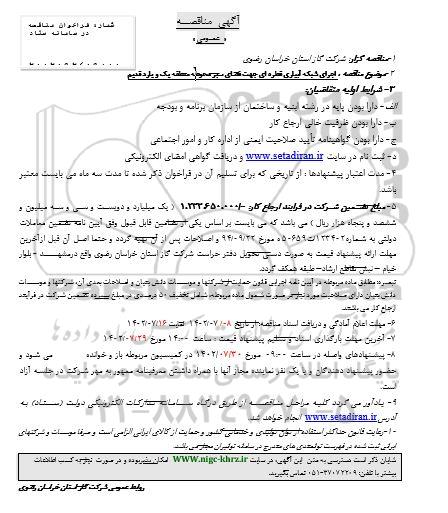 آگهی مناقصه
« عمومی»
شماره فراخوان مناقصه
در سامانه ستاد
۱-مناقصه گزار: شرکت گاز استان خراسان رضوی
۲-موضوع مناقصه : اجرای شبکه آبیاری قطره ای جهت فضای سبز محوطه منطقه یک و یارد قدیم
۳- شرایط اولیه متقاضیان:
الف- دارا بودن پایه در رشته ابنیه و ساختمان از سازمان برنامه و بودجه
ب- دارا بودن ظرفیت خالی ارجاع کار
ج- دارا بودن گواهینامه تأیید صلاحیت ایمنی از اداره کار و امور اجتماعی
د- ثبت نام در سایت www.setadiran.ir و دریافت گواهی امضای الکترونیکی
۴-مدت اعتبار پیشنهادها : از تاریخی که برای تسلیم آن در فراخوان ذکر شده تا مدت سه ماه می بایست معتبر
باشد.
۵-مبلغ تضمین شرکت در فرایند ارجاع کار: ۱.۲۳۳.۶۵۰.۰۰۰ ( یک میلیارد و دویست و سی و سه میلیون و
ششصد و پنجاه هزار ریال ) می باشد که می بایست بر اساس یکی از تضامین قابل قبول وفق آیین نامه تضمین معاملات
دولتی به شماره ۱۲۳۴۰۲/ت۵۰۶۵۹ه مورخ ۹۴/۰۹/۲۲ و اصلاحات پس از آن تهیه گردد و حتما اصل آن قبل ازآخرین
مهلت ارائه پیشنهاد قیمت به صورت دستی تحویل دفتر حراست شرکت گاز استان خراسان رضوی واقع درمشهد – بلوار
خیام – نبش تقاطع ارشاد– طبقه همکف گردد.
تبصره: مطابق ماده مربوطه در آیین نامه اجرایی قانون حمایت از شرکتها و موسسات دانش بنیان و اصلاحات بعدی آن، شرکتها و موسسات
دانش بنیان دارای صلاحیت مورد نیاز در صورت شمول ماده مربوطه، شامل تخفیف ۵۰ درصدی در مبلغ سپرده تضمین شرکت در فرآیند
ارجاع کار می باشند.
۶- مهلت اعلام آمادگی و دریافت اسناد مناقصه: از تاریخ ۱۴۰۲/۰۷/۰۸ لغایت ۱۴۰۲/۰۷/۱۶
۷- آخرین مهلت بارگذاری اسناد و تسلیم پیشنهاد قیمت : ساعت ۱۴:۰۰ مورخ ۱۴۰۲/۰۷/۲۹
۸- پیشنهادهای واصله در ساعت ۰۹:۰۰ مورخ ۱۴۰۲/۰۷/۳۰ در کمیسیون مربوطه باز و خوانده می شود و
حضور پیشنهاد دهندگان و یا یک نفر نماینده مجاز آنها با همراه داشتن معرفینامه ممهور به مهر شرکت در جلسه آزاد
است.
۹- یادآور می گردد کلیه مراحل مناقصه از طریق درگاه سامانه تدارکات الکترونیکی دولت (ستاد) به
آدرس www.setadiran.ir انجام خواهد شد.
۱۰-رعایت قانون حداکثر استفاده از توان تولیدی و خدماتی کشور و حمایت از کالای ایرانی الزامی است و صرفا موسسات و شرکتهای
ایرانی ثبت شده در فهرست توانمندی های مندرج در سامانه توانیران مجاز می باشند.
شایان ذکر است دسترسی به متن این آگهی، در سایت WWW.nigc-khrz.ir امکان پذیر بوده و در صورت نیاز به کسب اطلاعات
بیشتر با تلفن: ۳۷۰۷۲۲۰۹-۰۵۱ تماس بگیرید.
روابط عمومی شرکت گاز استان خراسان رضوی